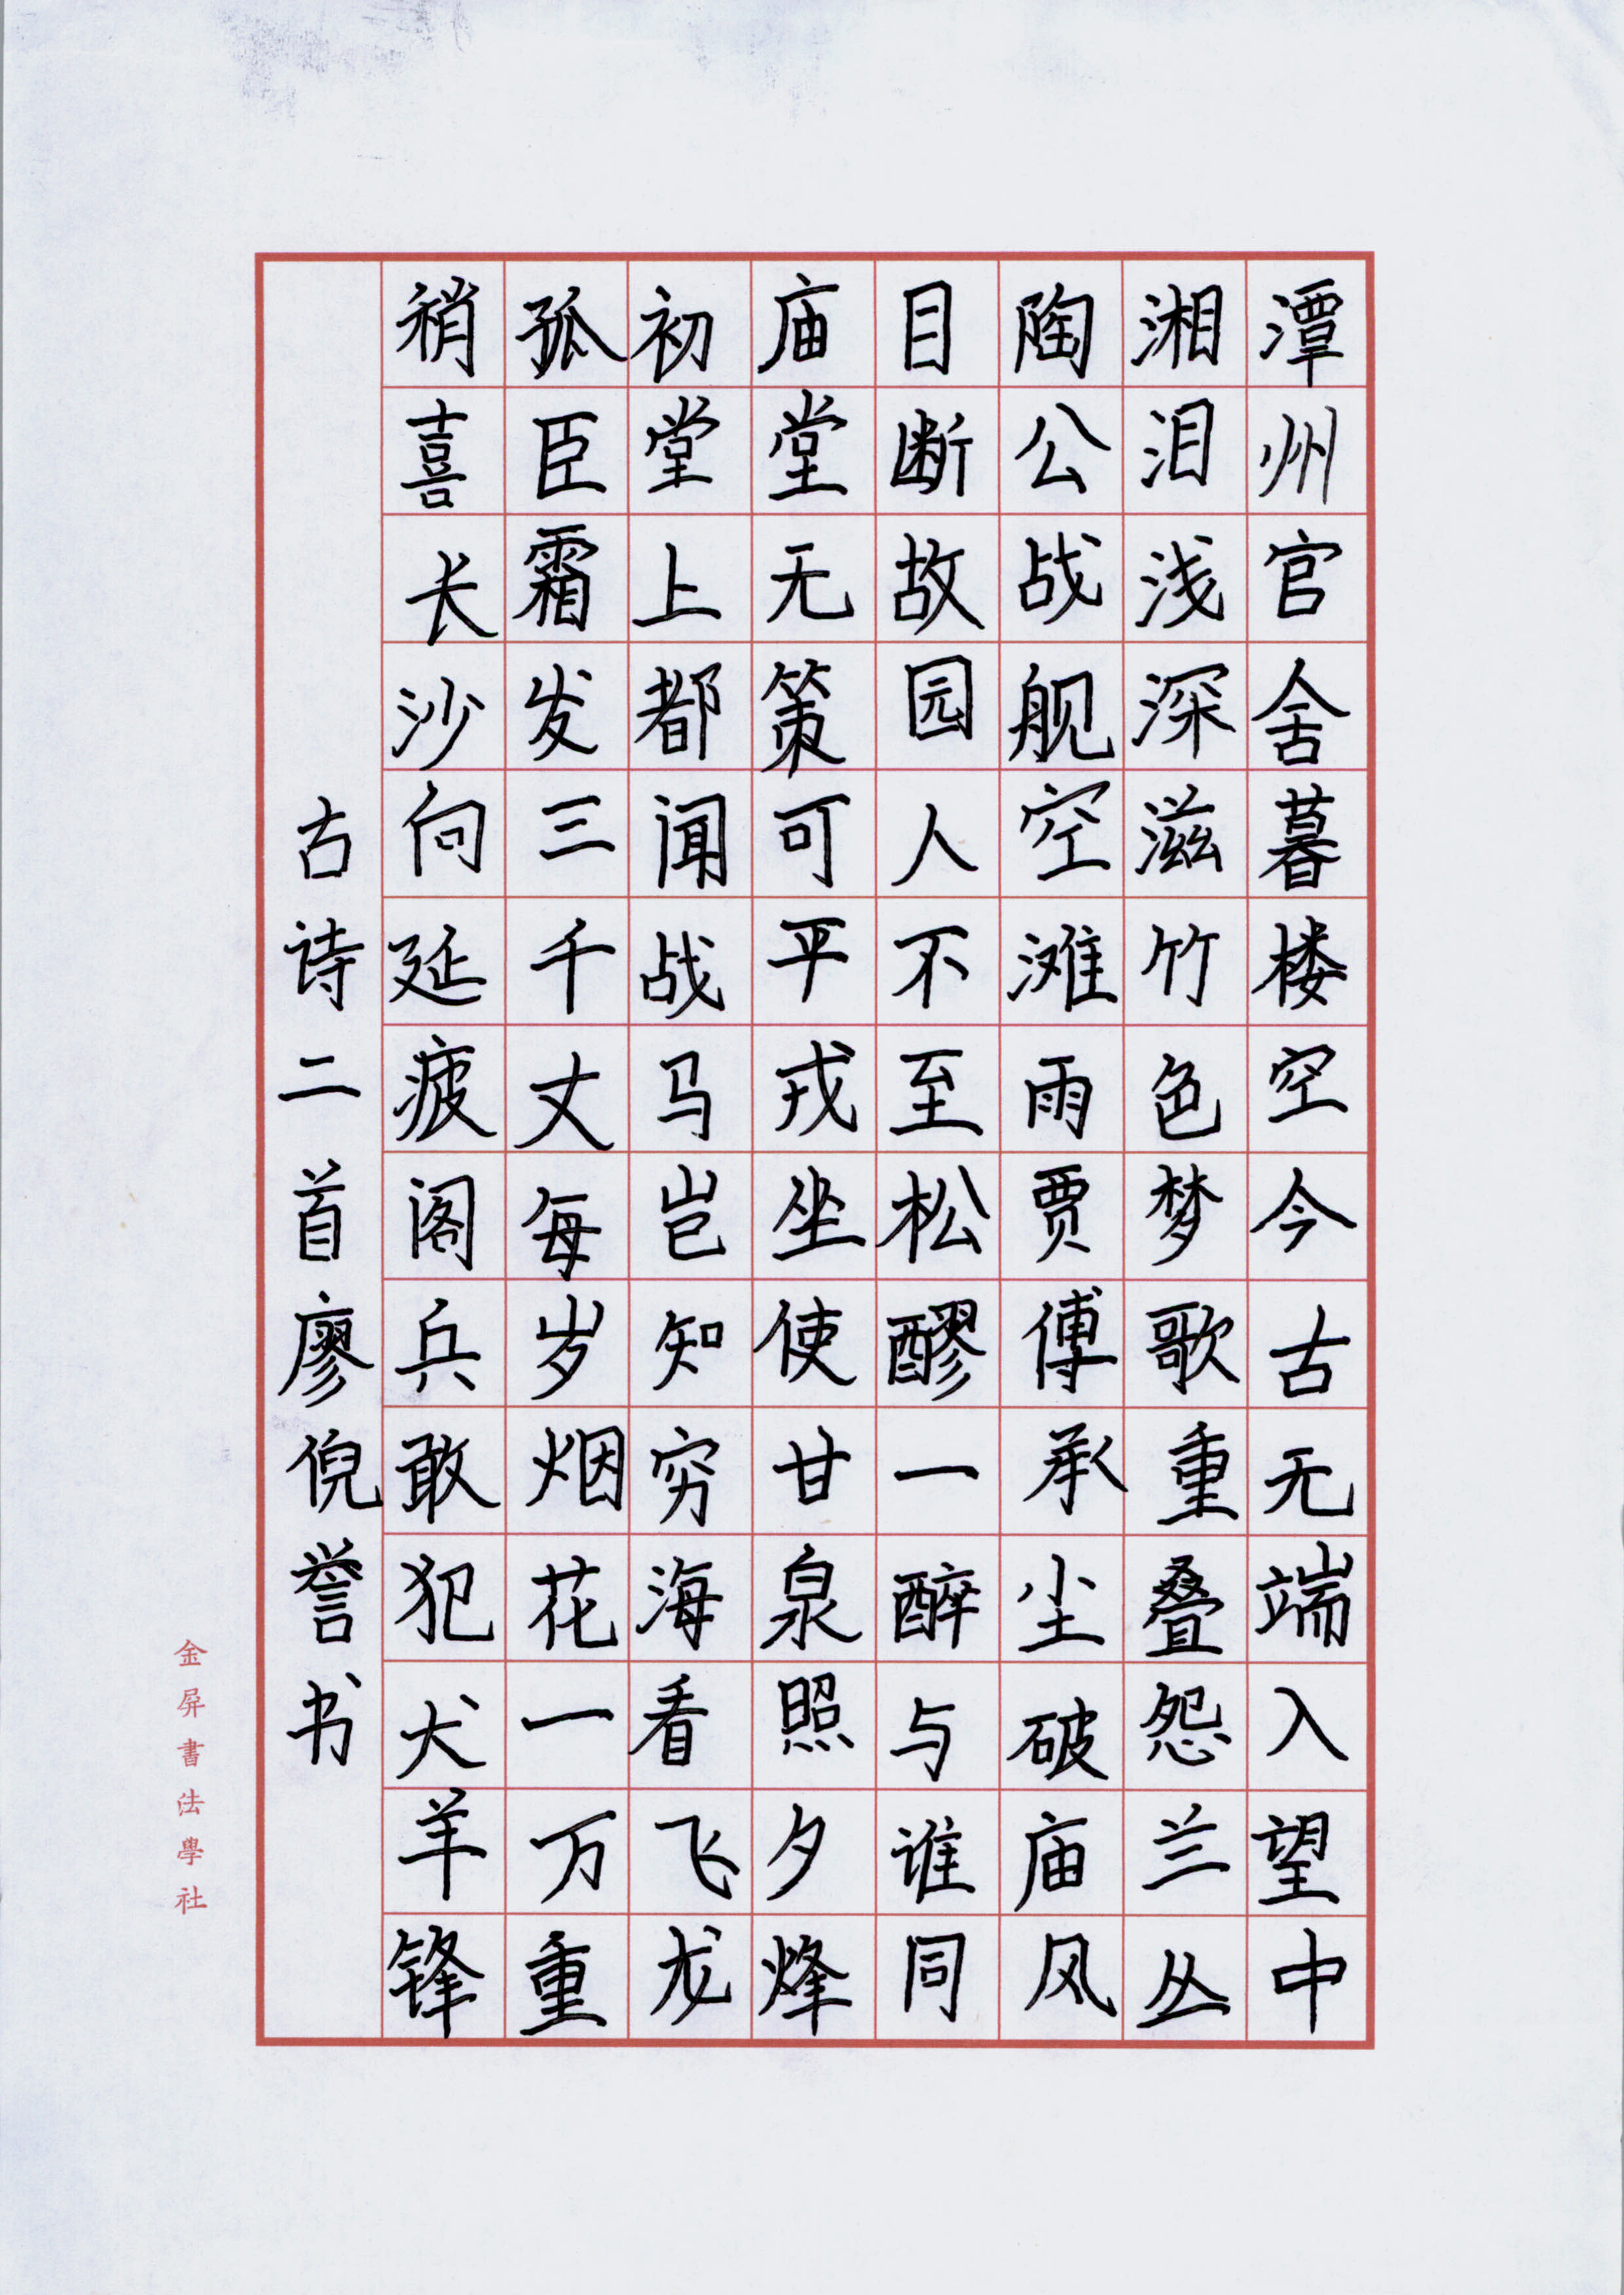 潭州官舍暮楼空今古无端入望中
湘泪浅深滋竹色梦歌重叠怨兰丛
陶公战舰空滩雨贾傅承尘破庙风
目断故园人不至松醪一醉与谁同
庙堂无策可平戎坐使甘泉照夕烽
初堂上都闻战马岂知穷海看飞龙
孤臣霜发三千丈每岁烟花一万重
稍喜长沙向延疲阁兵敢犯犬羊锋
古诗二首廖倪誉书
金屏書法學社